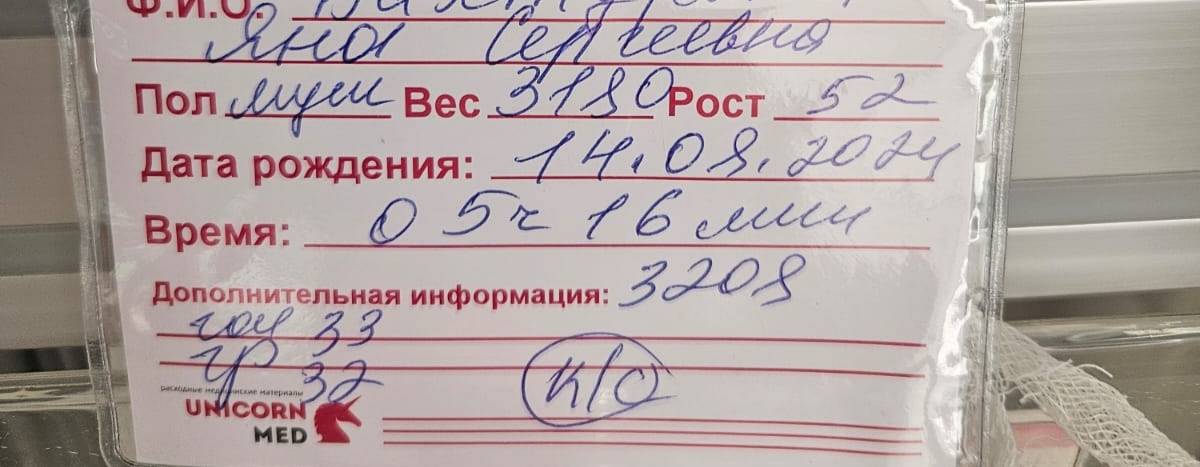 Ф.И.О.
Яна Сергеевна
Пол муж Вес 3180 Рост 52
Дата рождения: 14.08.2024
Время: 05ч 16 мин
Дополнительная информация: 3208
гол 33
гр 32
К/О
расходные медицинские материалы
UNICORN
MED